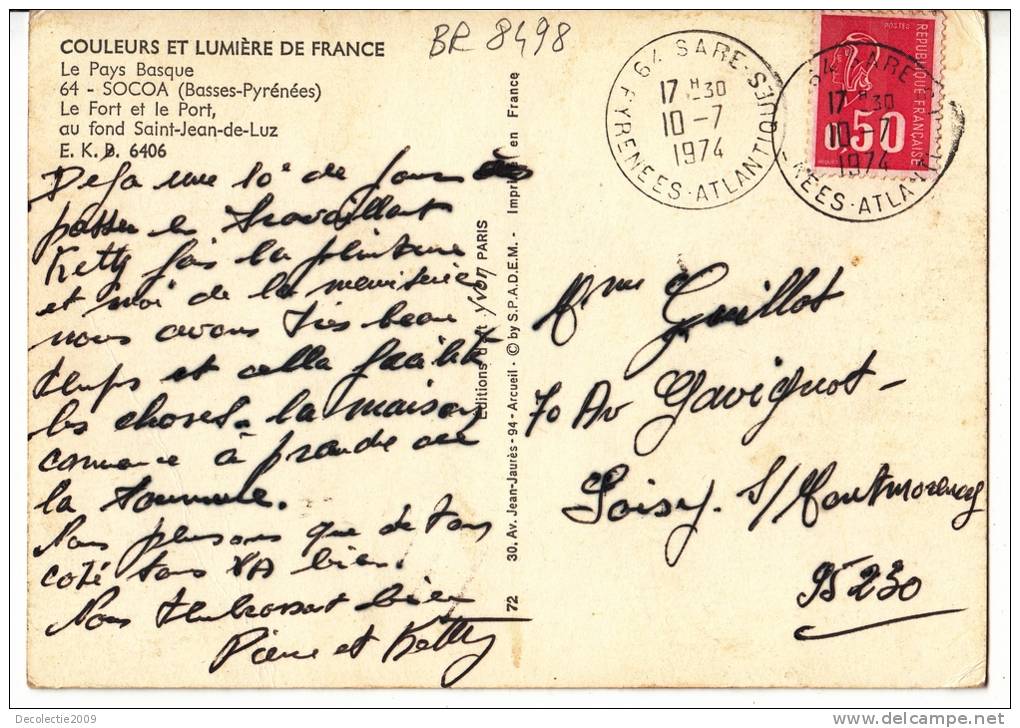 COULEURS ET LUMIÈRE DE FRANCE
Le Pays Basque
64 - SOCOA (Basses-Pyrénées)
Le Fort et le Port,
au fond Saint-Jean-de-Luz
E. K. B. 6406
BR 8498
64 SARE
17 H 30
10-7
1974
PYRENEES-ATLANTIQUES
POSTES
REPUBLIQUE FRANÇAISE
0,50
64 SARE
17 H 30
10-7
1974
Deja une 10e de jours
passer en travaillant
Ketty fais la peinture
et moi de la menuiserie
nous avons très beau
temps et cella facilite
les choses. la maison
commence à prendre
la
Nous pensons que de tous
coté tous VA bien.
Nous bien
Pierre et Ketty
72 30, Av. Jean-Jaurès - 94 - Arcueil - © by S.P.A.D.E.M. - Imprimé en France
Editions d'art Yvon PARIS
Mme Guillot
70 Av Gavignot -
Soisy. s/ Montmorency
95230
Decolectie2009
delcampe.net